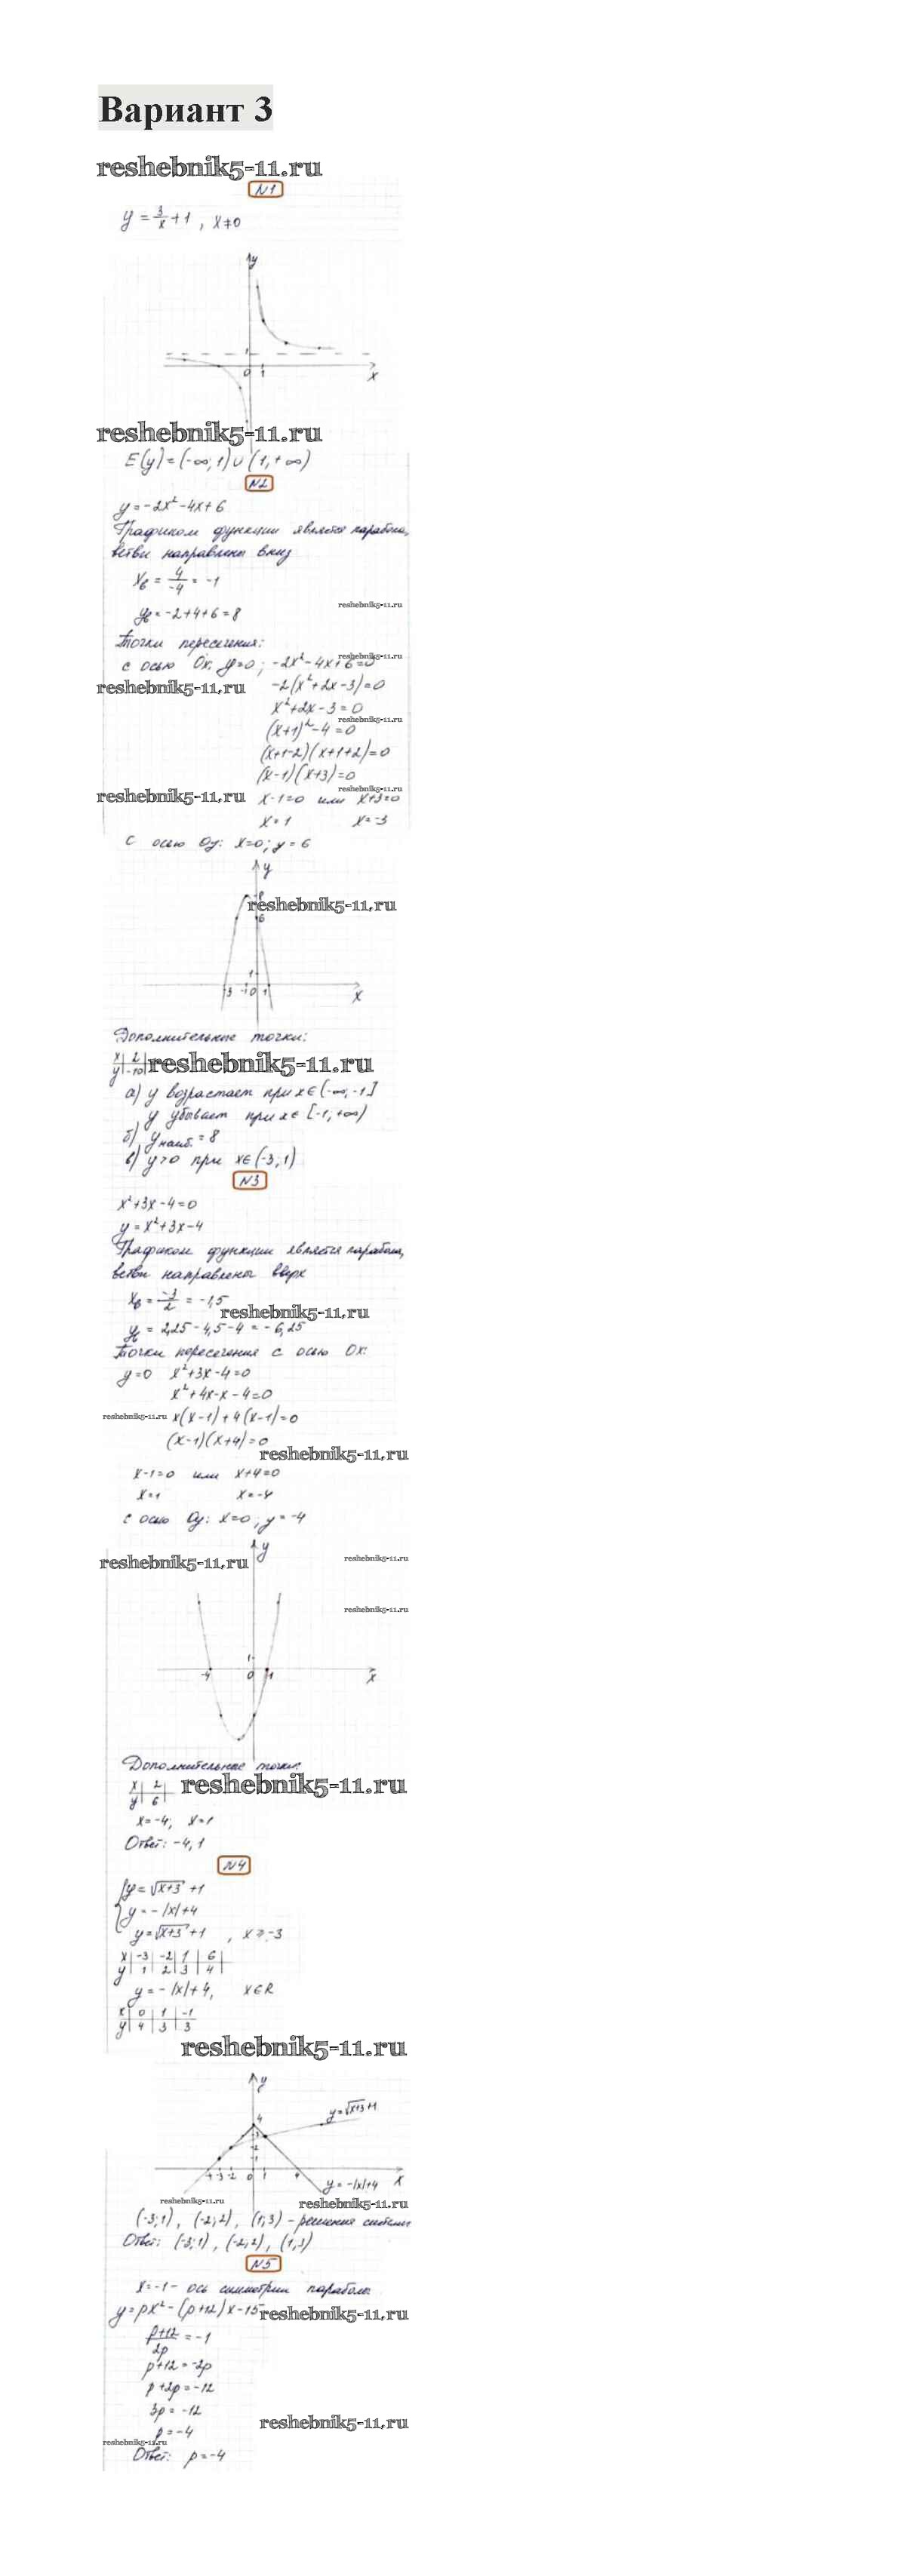 Вариант 3
reshebnik5-11.ru
N1
y = 3/x + 1 , x≠0
y
1
0 1
x
reshebnik5-11.ru
E(y) = (-∞; 1) ∪ (1; +∞)
N2
y = -2x² - 4x + 6
Графиком функции является парабола,
ветви направлены вниз
xв = 4/-4 = -1
yв = -2+4+6=8
reshebnik5-11.ru
Точки пересечения:
reshebnik5-11.ru
с осью Ox: y=0; -2x²-4x+6=0
reshebnik5-11.ru
-2(x²+2x-3)=0
x²+2x-3=0
reshebnik5-11.ru
(x+1)²-4=0
(x+1-2)(x+1+2)=0
(x-1)(x+3)=0
reshebnik5-11.ru
reshebnik5-11.ru
x-1=0 или x+3=0
x=1 x=-3
с осью Oy: x=0; y=6
y
8
reshebnik5-11.ru
6
1
-3 -1 0 1
x
Дополнительные точки:
x | 2 |
reshebnik5-11.ru
y | -10 |
а) y возрастает при x∈(-∞; -1]
y убывает при x∈[-1; +∞)
б) yнаиб. = 8
в) y>0 при x∈(-3; 1)
N3
x²+3x-4=0
y = x²+3x-4
Графиком функции является парабола,
ветви направлены вверх
xв = -3/2 = -1,5
reshebnik5-11.ru
yв = 2,25-4,5-4 = -6,25
Точки пересечения с осью Ox:
y=0 x²+3x-4=0
x²+4x-x-4=0
reshebnik5-11.ru
x(x-1)+4(x-1)=0
(x-1)(x+4)=0
reshebnik5-11.ru
x-1=0 или x+4=0
x=1 x=-4
с осью Oy: x=0; y=-4
y
reshebnik5-11.ru
reshebnik5-11.ru
reshebnik5-11.ru
1
-4 0 1
x
Дополнительные точки:
reshebnik5-11.ru
x | 2
y | 6
x=-4; x=1
Ответ: -4; 1
N4
y = √x+3 + 1
y = -|x|+4
y = √x+3 + 1 , x ≥ -3
x | -3 | -2 | 1 | 6 |
y | 1 | 2 | 3 | 4 |
y = -|x|+4, x∈R
x | 0 | 1 | -1
y | 4 | 3 | 3
reshebnik5-11.ru
y
y=√x+3+1
4
3
2
1
-4 -3 -2 0 1 4
x
y = -|x|+4
reshebnik5-11.ru
reshebnik5-11.ru
(-3;1), (-2;2), (1;3) - решения системы
Ответ: (-3;1), (-2;2), (1;3)
N5
x=-1 - ось симметрии параболы
y = px² - (p+12)x - 15
reshebnik5-11.ru
p+12/2p = -1
p+12=-2p
p+2p=-12
3p = -12
reshebnik5-11.ru
p=-4
reshebnik5-11.ru
Ответ: p=-4